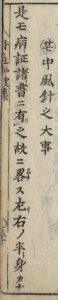 中風針之大事
是モ病証諸書ニ有之故ニ畧ス左右ノ半身カナ